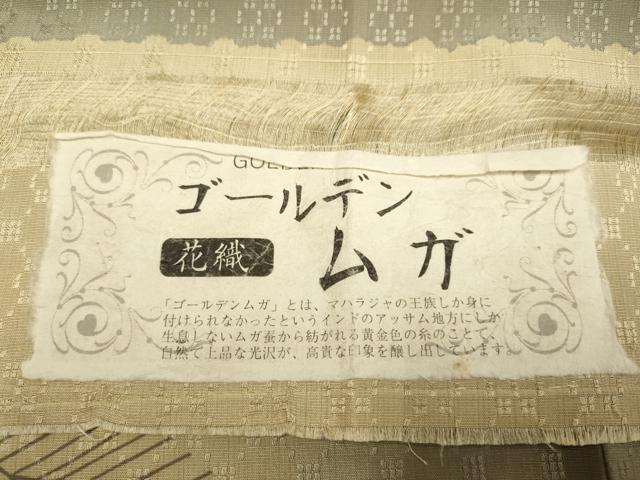 ゴールデン
ムガ
花織
「ゴールデンムガ」とは、マハラジャの王族しか身に
付けられなかったというインドのアッサム地方にしか
生息しないムガ蚕から紡がれる黄金色の糸のことで、
自然で上品な光沢が、高貴な印象を醸し出しています。